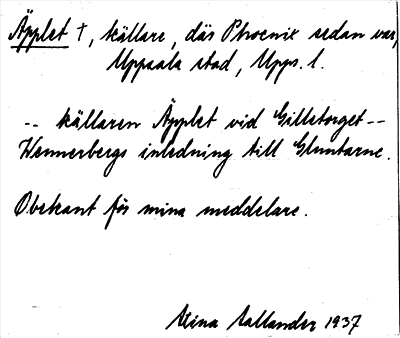 Äpplet †, källare, där Phoenix sedan var,
Uppsala stad, Upps. l.
-- källaren Äpplet vid Gilletorget --
Wennerbergs inledning till Gluntarne.
Obekant för mina meddelare.
Stina Sallander 1937